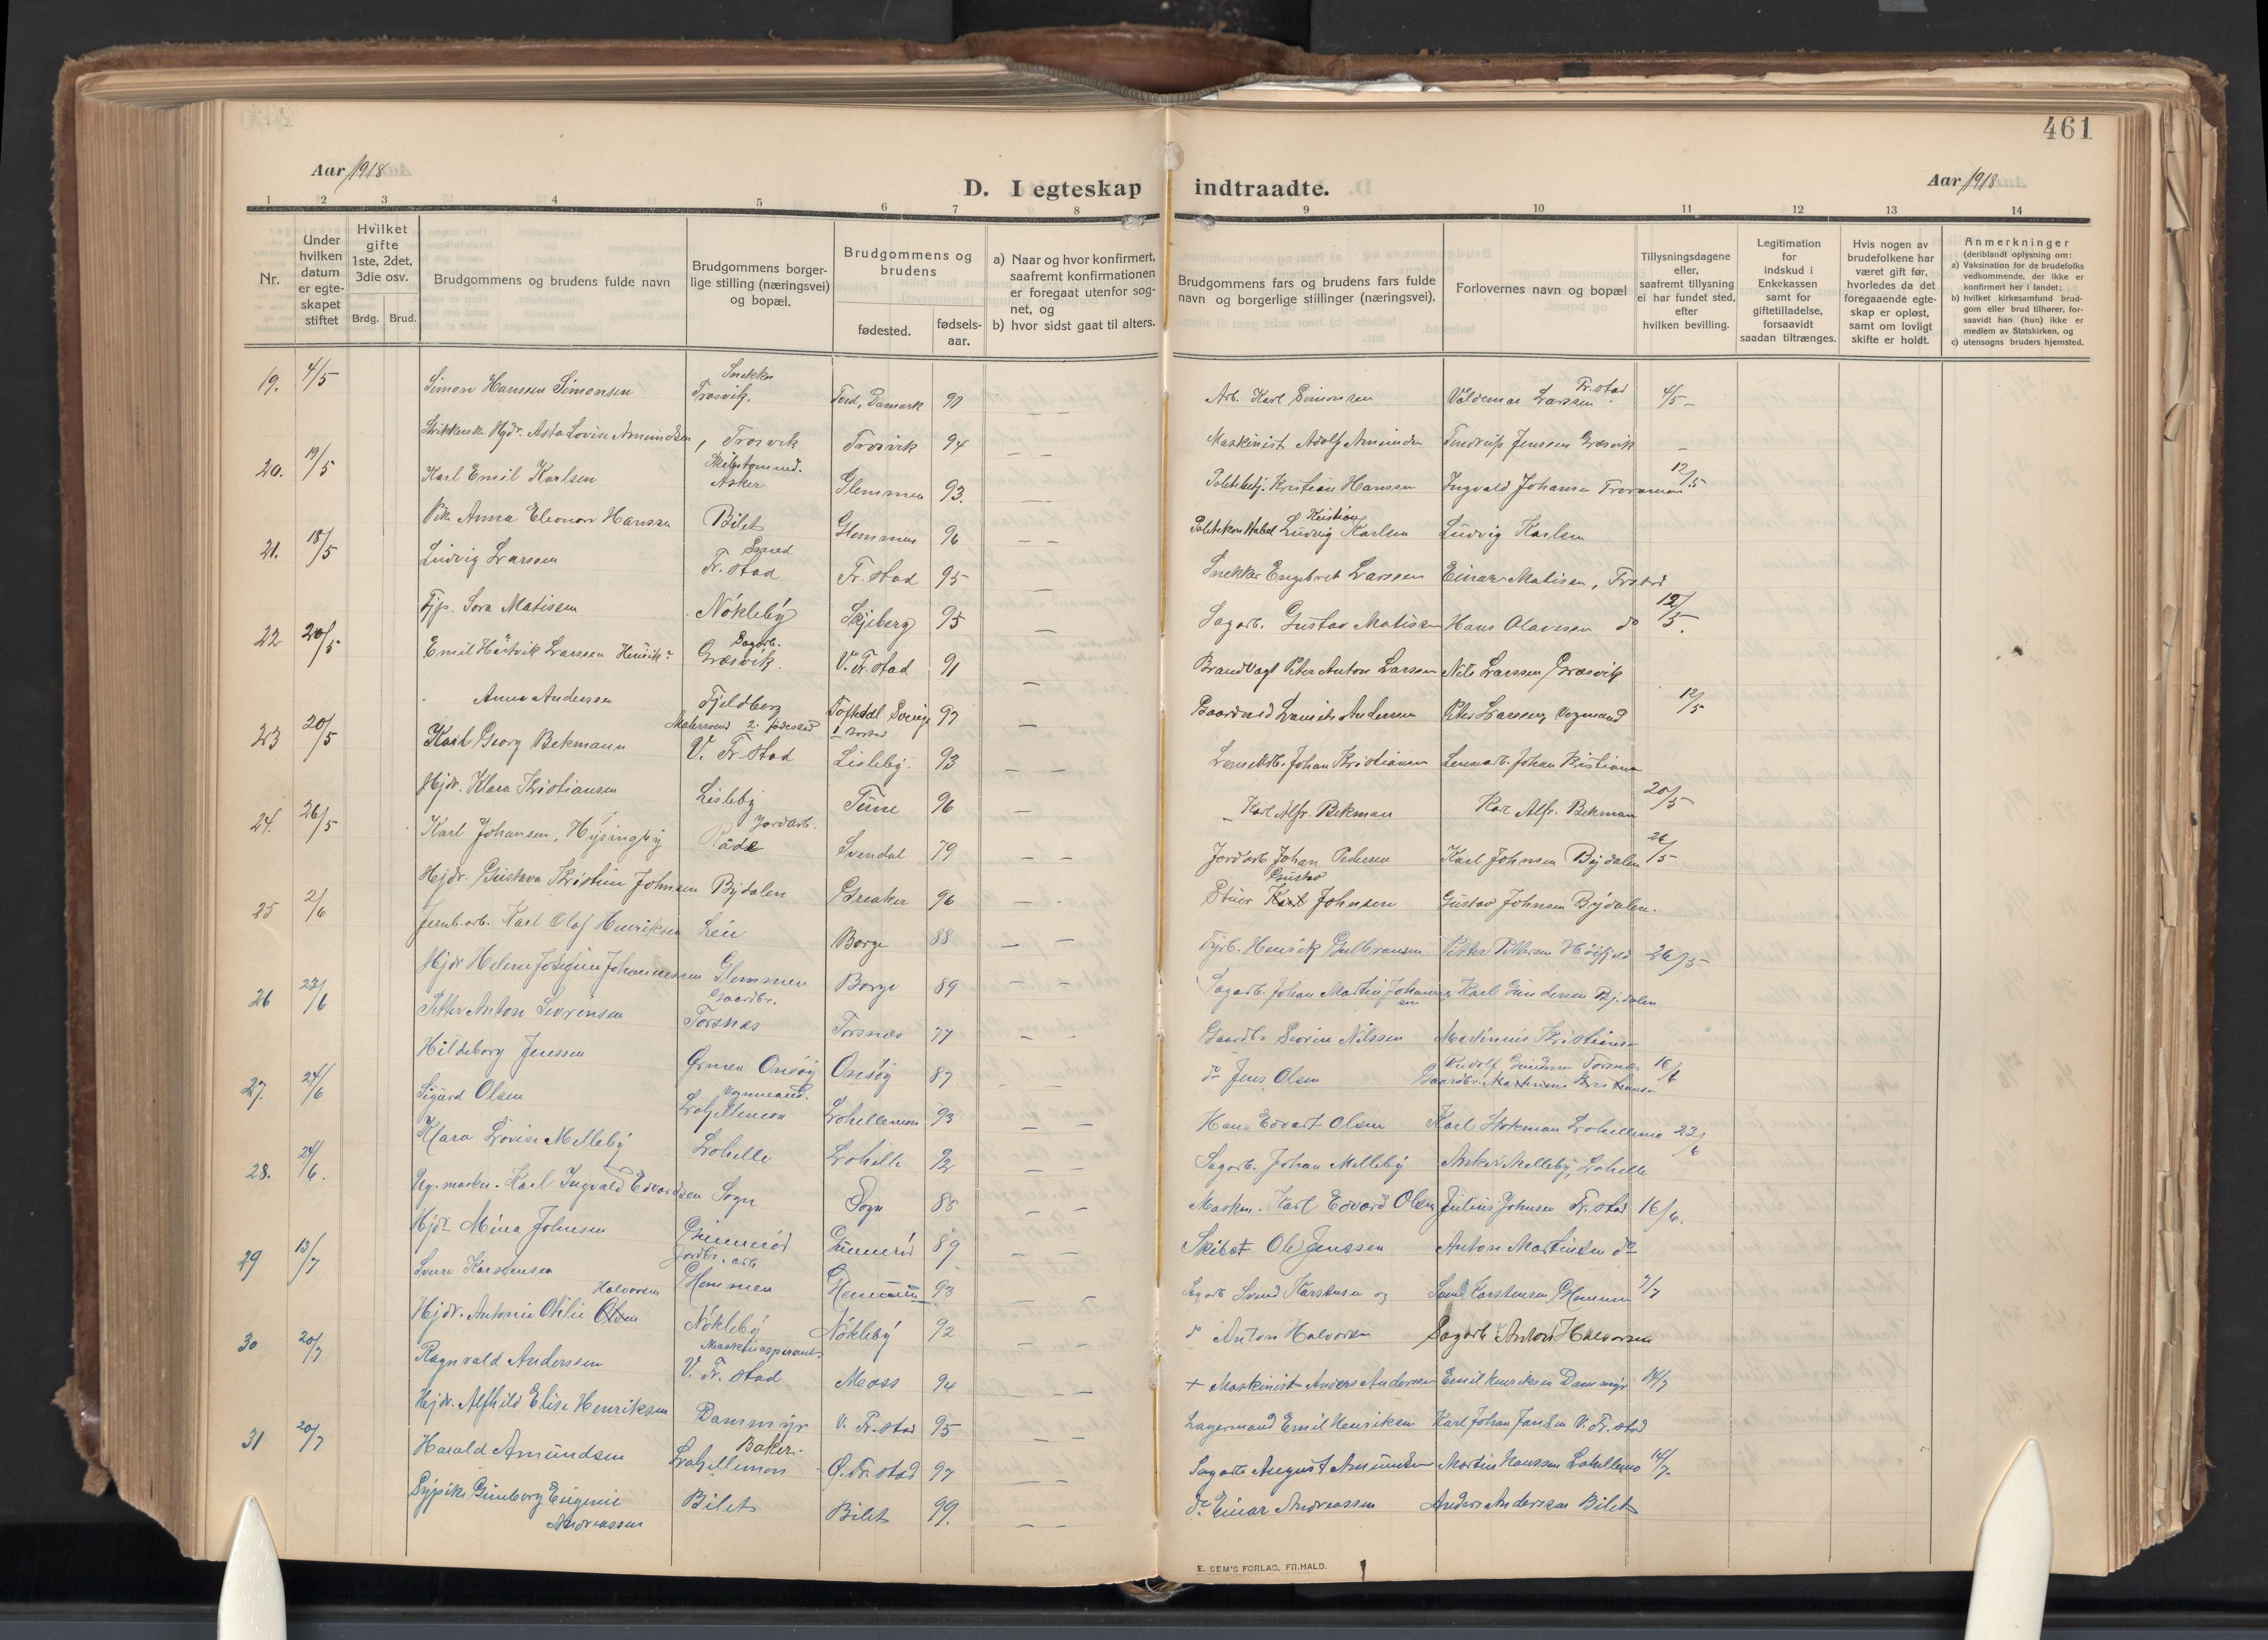 461
Aar 1918
D. I egteskap indtraadte.
Aar 1918
1 2 3 4 5 6 7 8 9 10 11 12 13 14
Nr.
Under hvilken datum er egteskapet stiftet
Hvilket gifte 1ste, 2det, 3die osv.
Brdg. Brud.
Brudgommens og brudens fulde navn
Brudgommens borgerlige stilling (næringsvei) og bopæl.
Brudgommens og brudens
fødested.
fødsels-aar.
a) Naar og hvor konfirmert, saafremt konfirmationen er foregaat utenfor sognet, og
b) hvor sidst gaat til alters.
Brudgommens fars og brudens fars fulde navn og borgerlige stillinger (næringsvei).
Forlovernes navn og bopæl
Tillysningsdagene eller, saafremt tillysning ei har fundet sted, efter hvilken bevilling.
Legitimation for indskud i Enkekassen samt for giftetilladelse, forsaavidt saadan tiltrænges.
Hvis nogen av brudefolkene har været gift før, hvorledes da det foregaaende egteskap er opløst, samt om lovligt skifte er holdt.
Anmerkninger
(deriblandt oplysning om:
a) Vaksination for de brudefolks vedkommende, der ikke er konfirmert her i landet;
b) hvilket kirkesamfund brudgom eller brud tilhører, forsaavidt han (hun) ikke er medlem av Statskirken, og
c) utensogns bruders hjemsted.
19. 4/5 Simon Hanssen Simonsen Snekker Trosvik. Danmark 91 Arb. Karl Simonsen Valdemar Larssen Fr.stad 4/5
Hjdr. Asta Lovise Amundsen, Trosvik Trosvik 94 Maskinist Adolf Amundsen Jenssen Græsvik
20. 19/5 Karl Emil Karlsen Asker Glemmen 93. Kristian Hanssen Ingvald Johansen 12/5
Pike Anna Eleonora Hanssen Bilet Glemmen 96 Ludvig Kristian Karlsen Ludvig Karlsen
21. 18/5 Ludvig Larssen Smed Fr. stad Fr. stad 95 Snekker Engebret Larssen Einar Matisen, Frstad
Tjp. Sora Matissen Nökleby Skjeberg 95 Sagarb. Gustav Matissen Hans Olavesen do 12/5.
22 20/5 Emil Hartvik Larssen Sagarb. Græsvik. V. Fr. stad 91 Brandvagt Peter Anton Larssen Nils Larssen Græsvik
Anna Andersen Fjeldberg Sverige 97 Andersen Peter Larssen, Vognmand 12/5
23 20/5 Karl Georg Bekmann Malersvend V. Fr. stad Lisleby. 93 Johan Kristiansen Johan Kristiansen
Hjdr. Klara Kristiansen Lisleby Tune 96 Karl Alfr. Bekman Kar Alfr. Bekman 20/5
24. 26/5 Karl Johansen, Jordarb. Råde Svendal 79 Jordarb. Johan Pedersen Karl Johnsen Bydalen 26/5
Hjdr. Gustava Kristine Johnsen Bydalen Greaker 96 Gustav Johnsen Gustav Johnsen Bydalen.
25 2/6 Jernb.arb. Karl Olaf Henriksen Leie Borge 88 Fyrb. Henrik Gulbransen Petter Pettersen 26/5
Hjdr Helene Josefine Johannessen Glemmen Borge 89 Sagarb. Johan Martin Johannessen Karl Gundersen Bydalen
26 23/6 Petter Anton Sevrinsen Gaardbr. Torsnes Torsnes 77 Gaardbr Sevrin Nilssen Martinius Kristiansen
Hildeborg Jenssen Onsöy Onsöy 87 do Jens Olsen Rudolf Gundersen Torsnes Gaardbr. Martinius Kristiansen 16/6
27. 24/6 Sigurd Olsen Vognmand. Lahellemoen Lahellemoen 93 Hans Edvart Olsen Karl Stokman Lahellemo 23/6
Klara Lovise Melleby Lahelle Lahelle 92 Sagarb. Johan Melleby Asker Melleby, Lahelle
28. 24/6. Karl Ingvald Edvardsen Sogn Sogn 88 Maskin. Karl Edvard Olsen Julius Johnsen Fr. stad 16/6.
Hjdr Mina Johnsen Gunnerød Gunnerød 89 Ole Jenssen Anton Martinsen do
29 13/7 Sverre Karstensen Glemmen Glemmen 93 Sagarb Svend Karstensen og Karstensen Glemmen 7/7
Hjdr. Antonie Otilie Halvorsen Nökleby Nökleby 92 do Anton Halvorsen Sagarb Anton Halvorsen
30 20/7 Ragnvald Anderssen Maskinaspirant V. Fr. stad Moss 94 + Maskinist Anders Andersen Emil Henriksen Dammyr 14/7
Hjdr. Alfhild Elise Henriksen Dammyr V. Fr. stad 95 Lagermand Emil Henriksen Karl Johan Jansen V. Fr. stad
31 20/7 Harald Amundsen Baker. Lahellemoen Ø. Fr. stad 97 Sagarb August Amundsen Martin Hanssen Lahellemo 14/7.
Sypike Gunborg Eugenie Andreassen Bilet Bilet 99. do Einar Andreassen Anders Anderssen Bilet
E. SEM'S FORLAG, FR.HALD.